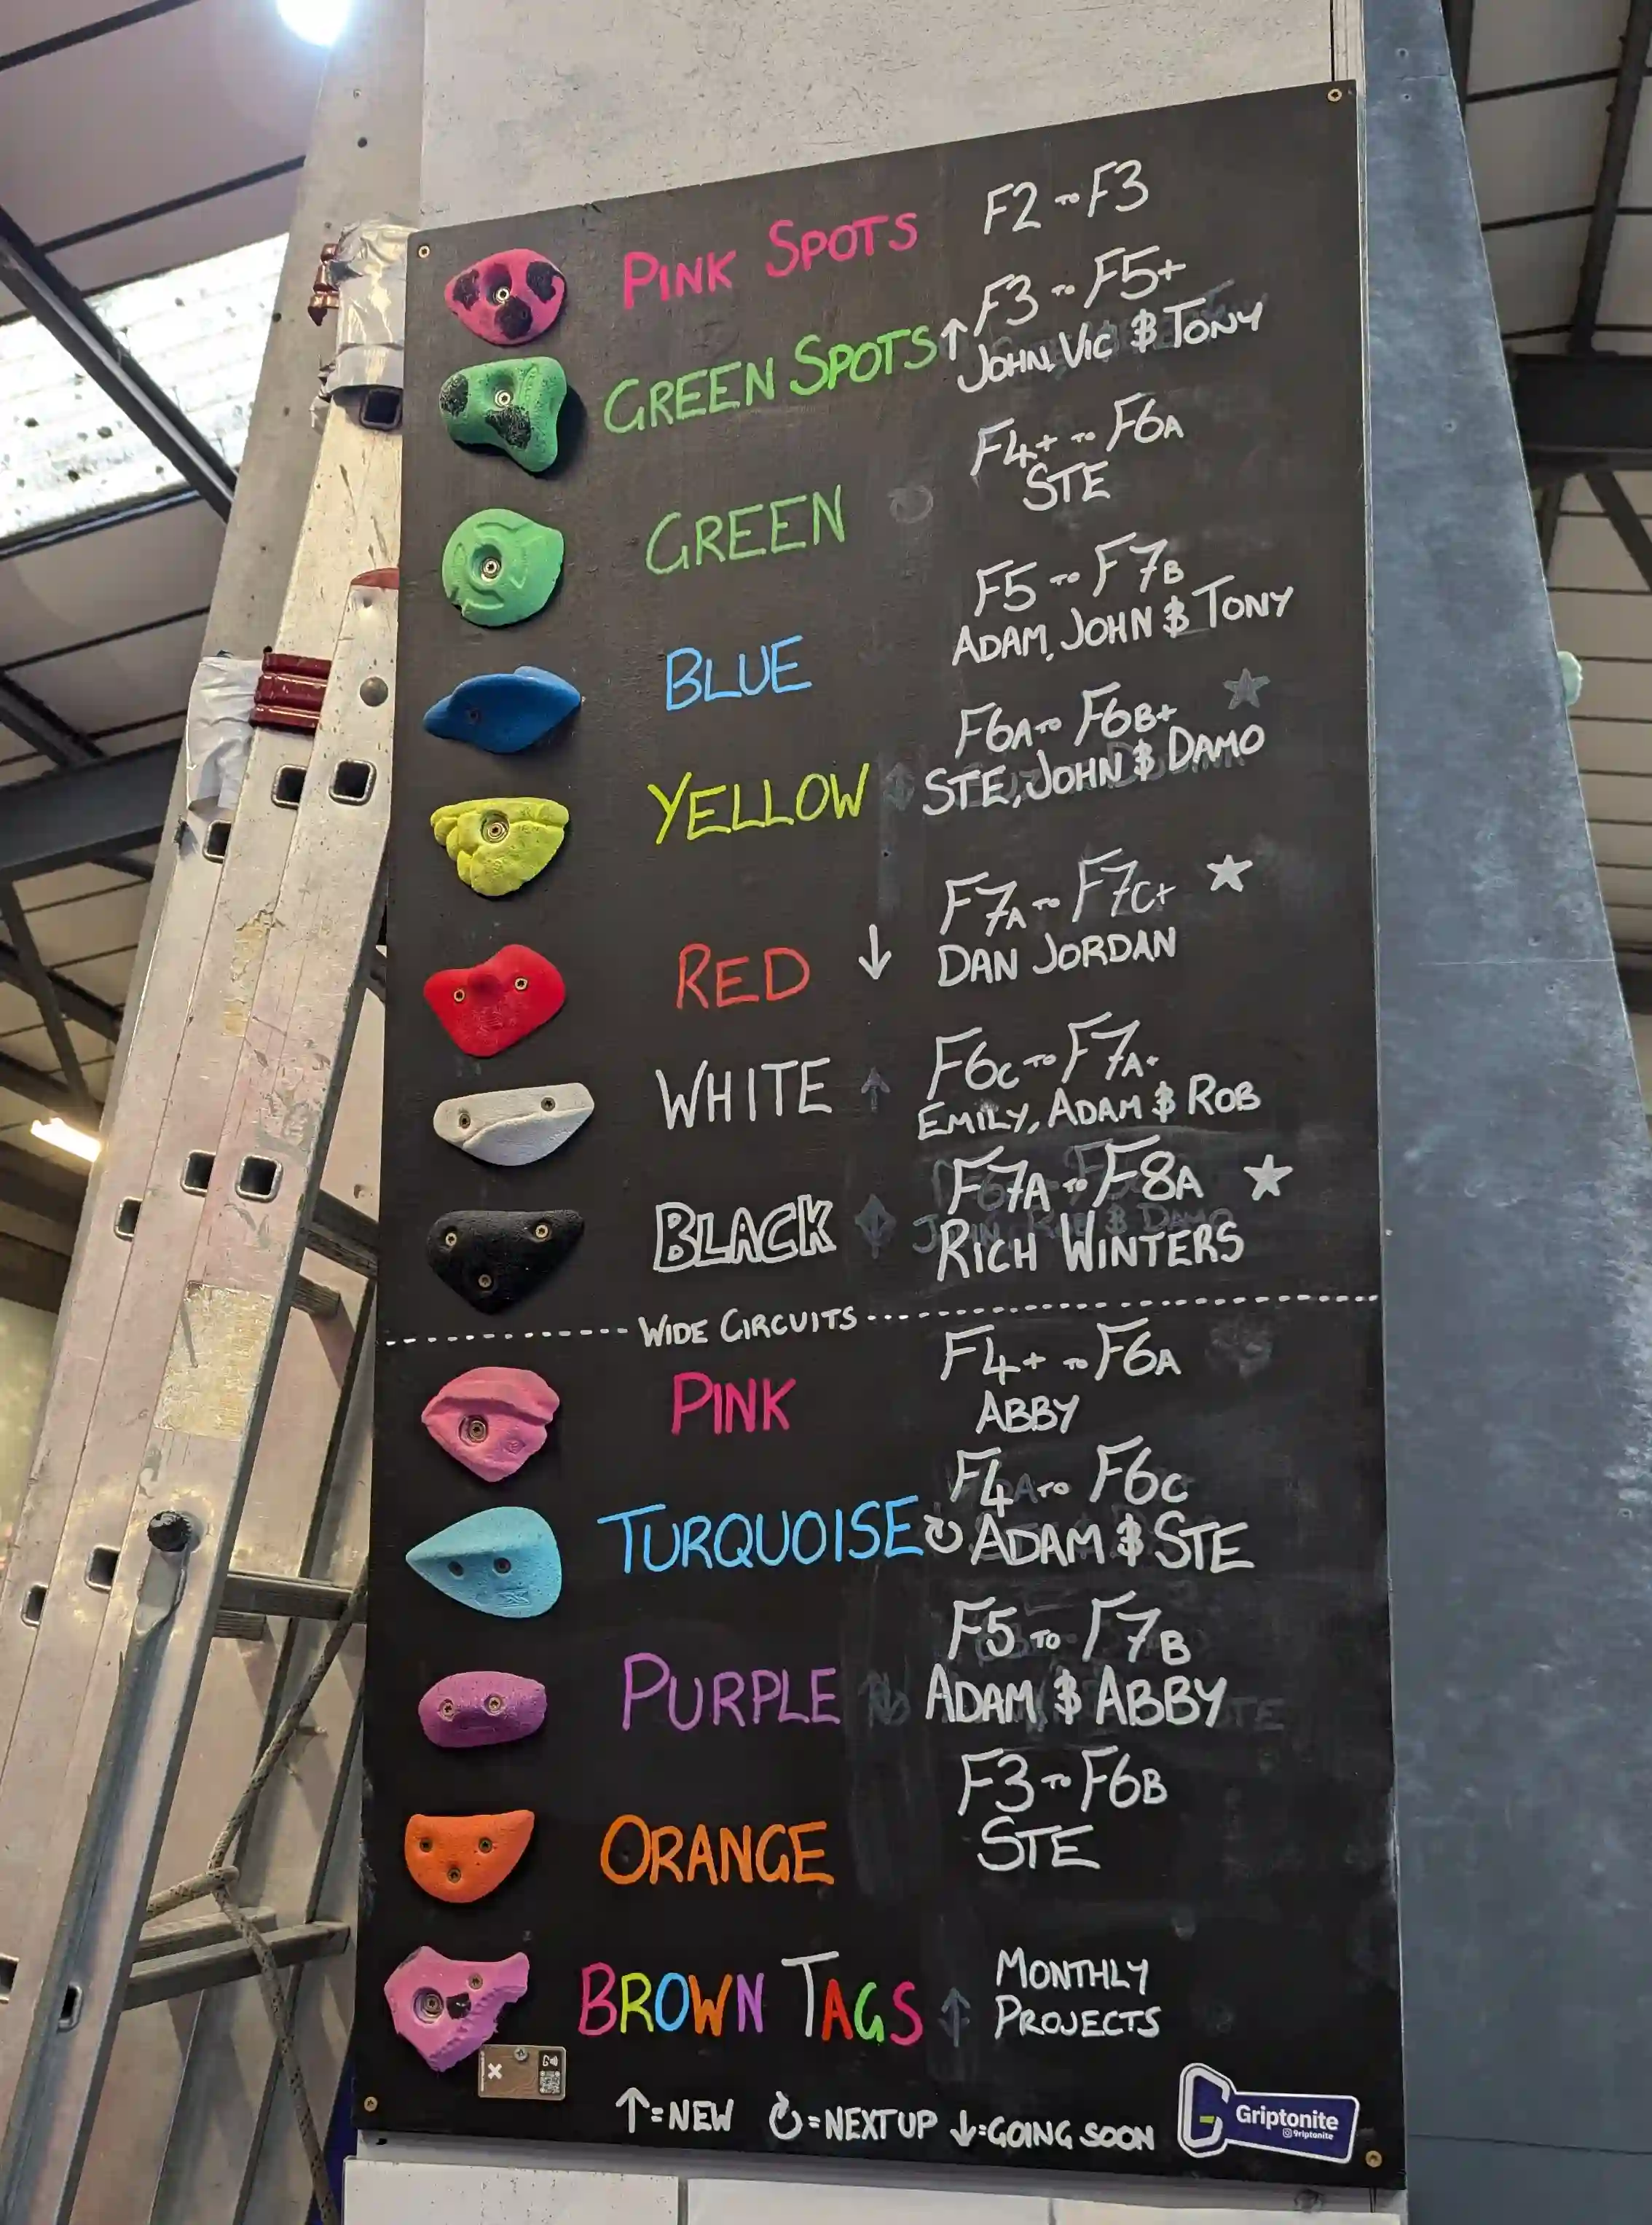 PINK SPOTS F2 TO F3
GREEN SPOTS ↑ F3 TO F5+
JOHN, VIC & TONY
GREEN F4+ TO F6A
STE
BLUE F5 TO F7B
ADAM, JOHN & TONY
YELLOW F6A TO F6B+
STE, JOHN & DAMO
RED ↓ F7A TO F7C+ ★
DAN JORDAN
WHITE ↑ F6C TO F7A+
EMILY, ADAM & ROB
BLACK F7A TO F8A ★
RICH WINTERS
WIDE CIRCUITS
PINK F4+ TO F6A
ABBY
TURQUOISE ↻ F4 TO F6C
ADAM & STE
PURPLE F5 TO F7B
ADAM & ABBY
ORANGE F3 TO F6B
STE
BROWN TAGS ↑ MONTHLY
PROJECTS
↑=NEW ↻=NEXT UP ↓=GOING SOON
Griptonite
griptonite